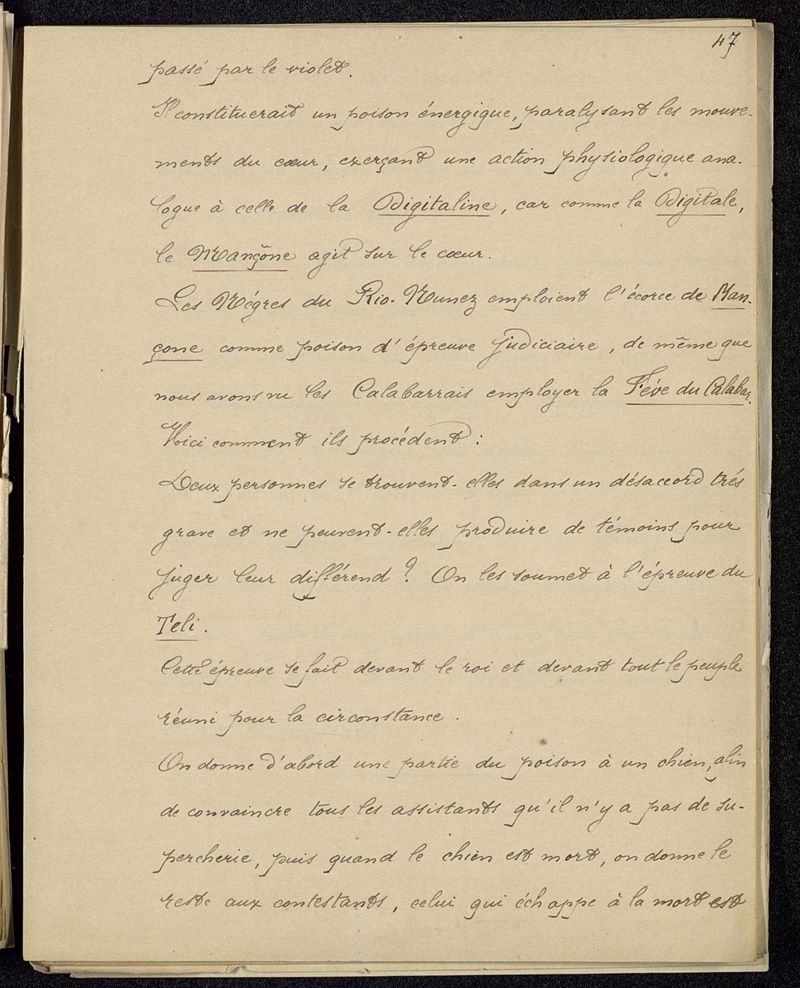 47
passé par le violet.
Il constituerait un poison énergique, paralysant les mouve-
ments du cœur, exerçant une action physiologique ana-
logue à celle de la Digitaline, car comme la Digitale,
le Mançône agit sur le cœur.
Les Nègres du Rio-Nunez emploient l'écorce de Man-
çone comme poison d'épreuve judiciaire, de même que
nous avons vu les Calabarrais employer la Fève du Calabar.
Voici comment ils procèdent :
Deux personnes se trouvent-elles dans un désaccord trés
grave et ne peuvent-elles produire de témoins pour
juger leur différend ? On les soumet à l'épreuve du
Teli.
Cette épreuve se fait devant le roi et devant tout le peuple
réuni pour la circonstance.
On donne d'abord une partie du poison à un chien, afin
de convaincre tous les assistants qu'il n'y a pas de su-
percherie, puis quand le chien est mort, on donne le
reste aux contestants, celui qui échappe à la mort est